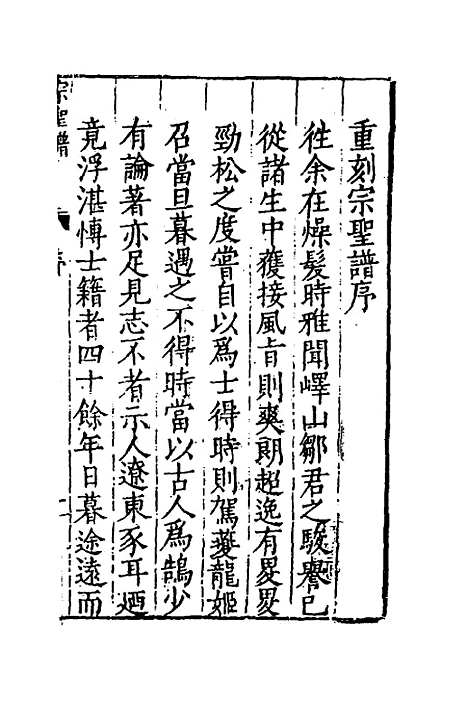 重刻宗聖譜序
徃余在燥髮時雅聞嶧山鄒君之駿譽已
從諸生中獲接風旨則爽朗超逸有畟畟
勁松之度嘗自以爲士得時則駕夔龍姬
召當旦暮遇之不得時當以古人爲鵠少
有論著亦足見志不者示人遼東豕耳廼
竟浮湛博士籍者四十餘年日暮途遠而
宗聖譜
序